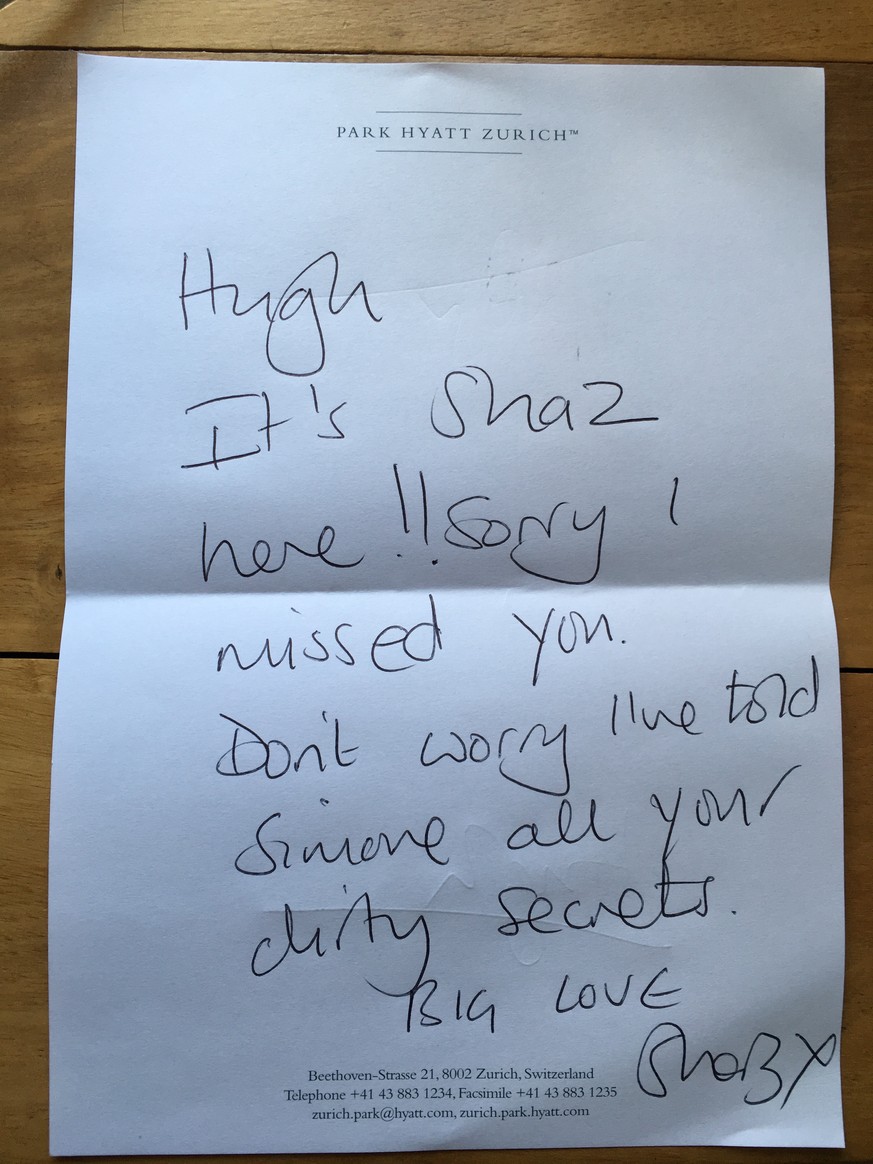 PARK HYATT ZURICH™
Hugh
It's Shaz
here!! Sorry I
missed you.
Don't worry I've told
Simone all your
dirty secrets.
BIG LOVE
Shaz x
Beethoven–Strasse 21, 8002 Zurich, Switzerland
Telephone +41 43 883 1234, Facsimile +41 43 883 1235
zurich.park@hyatt.com, zurich.park.hyatt.com